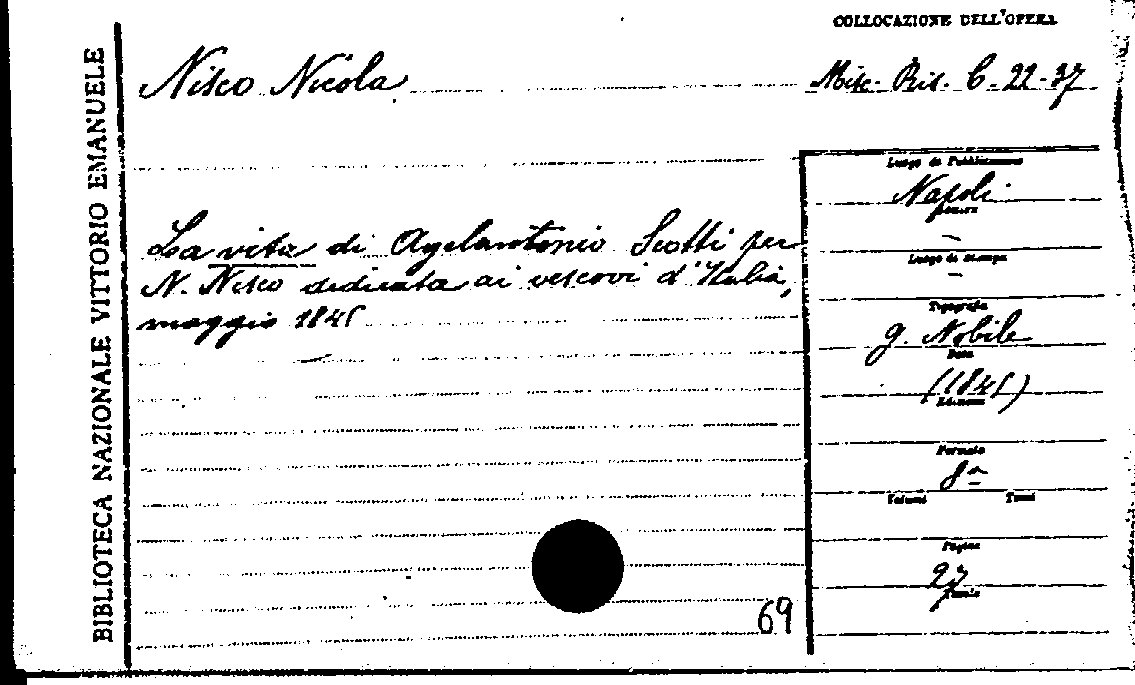 COLLOCAZIONE DELL'OPERA
BIBLIOTECA NAZIONALE VITTORIO EMANUELE
Nisco Nicola
Misc. Ris. C. 22-37
Luogo di Pubblicazione
Napoli
La vita di Agelantonio Scotti per
N. Nisco dedicata ai vescovi d'Italia,
maggio 1845
Luogo di stampa
Tipografia
G. Nobile
Data
(1845)
Edizione
Formato
8°
Volumi Tomi
Pagine
27
Tavole
69